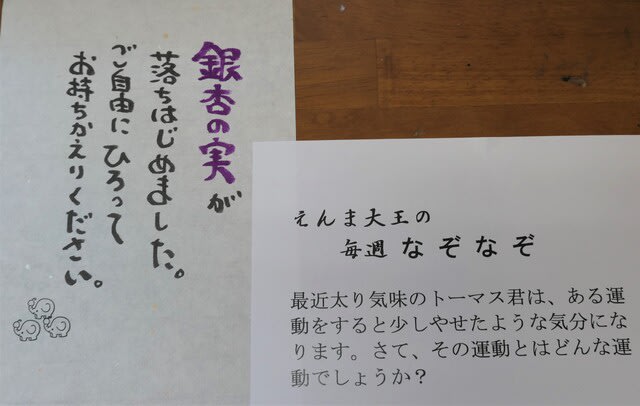 銀杏の実が
落ちはじめました。
ご自由にひろって
お持ちかえりください。
えんま大王の
毎週 なぞなぞ
最近太り気味のトーマス君は、ある運
動をすると少しやせたような気分にな
ります。さて、その運動とはどんな運
動でしょうか？